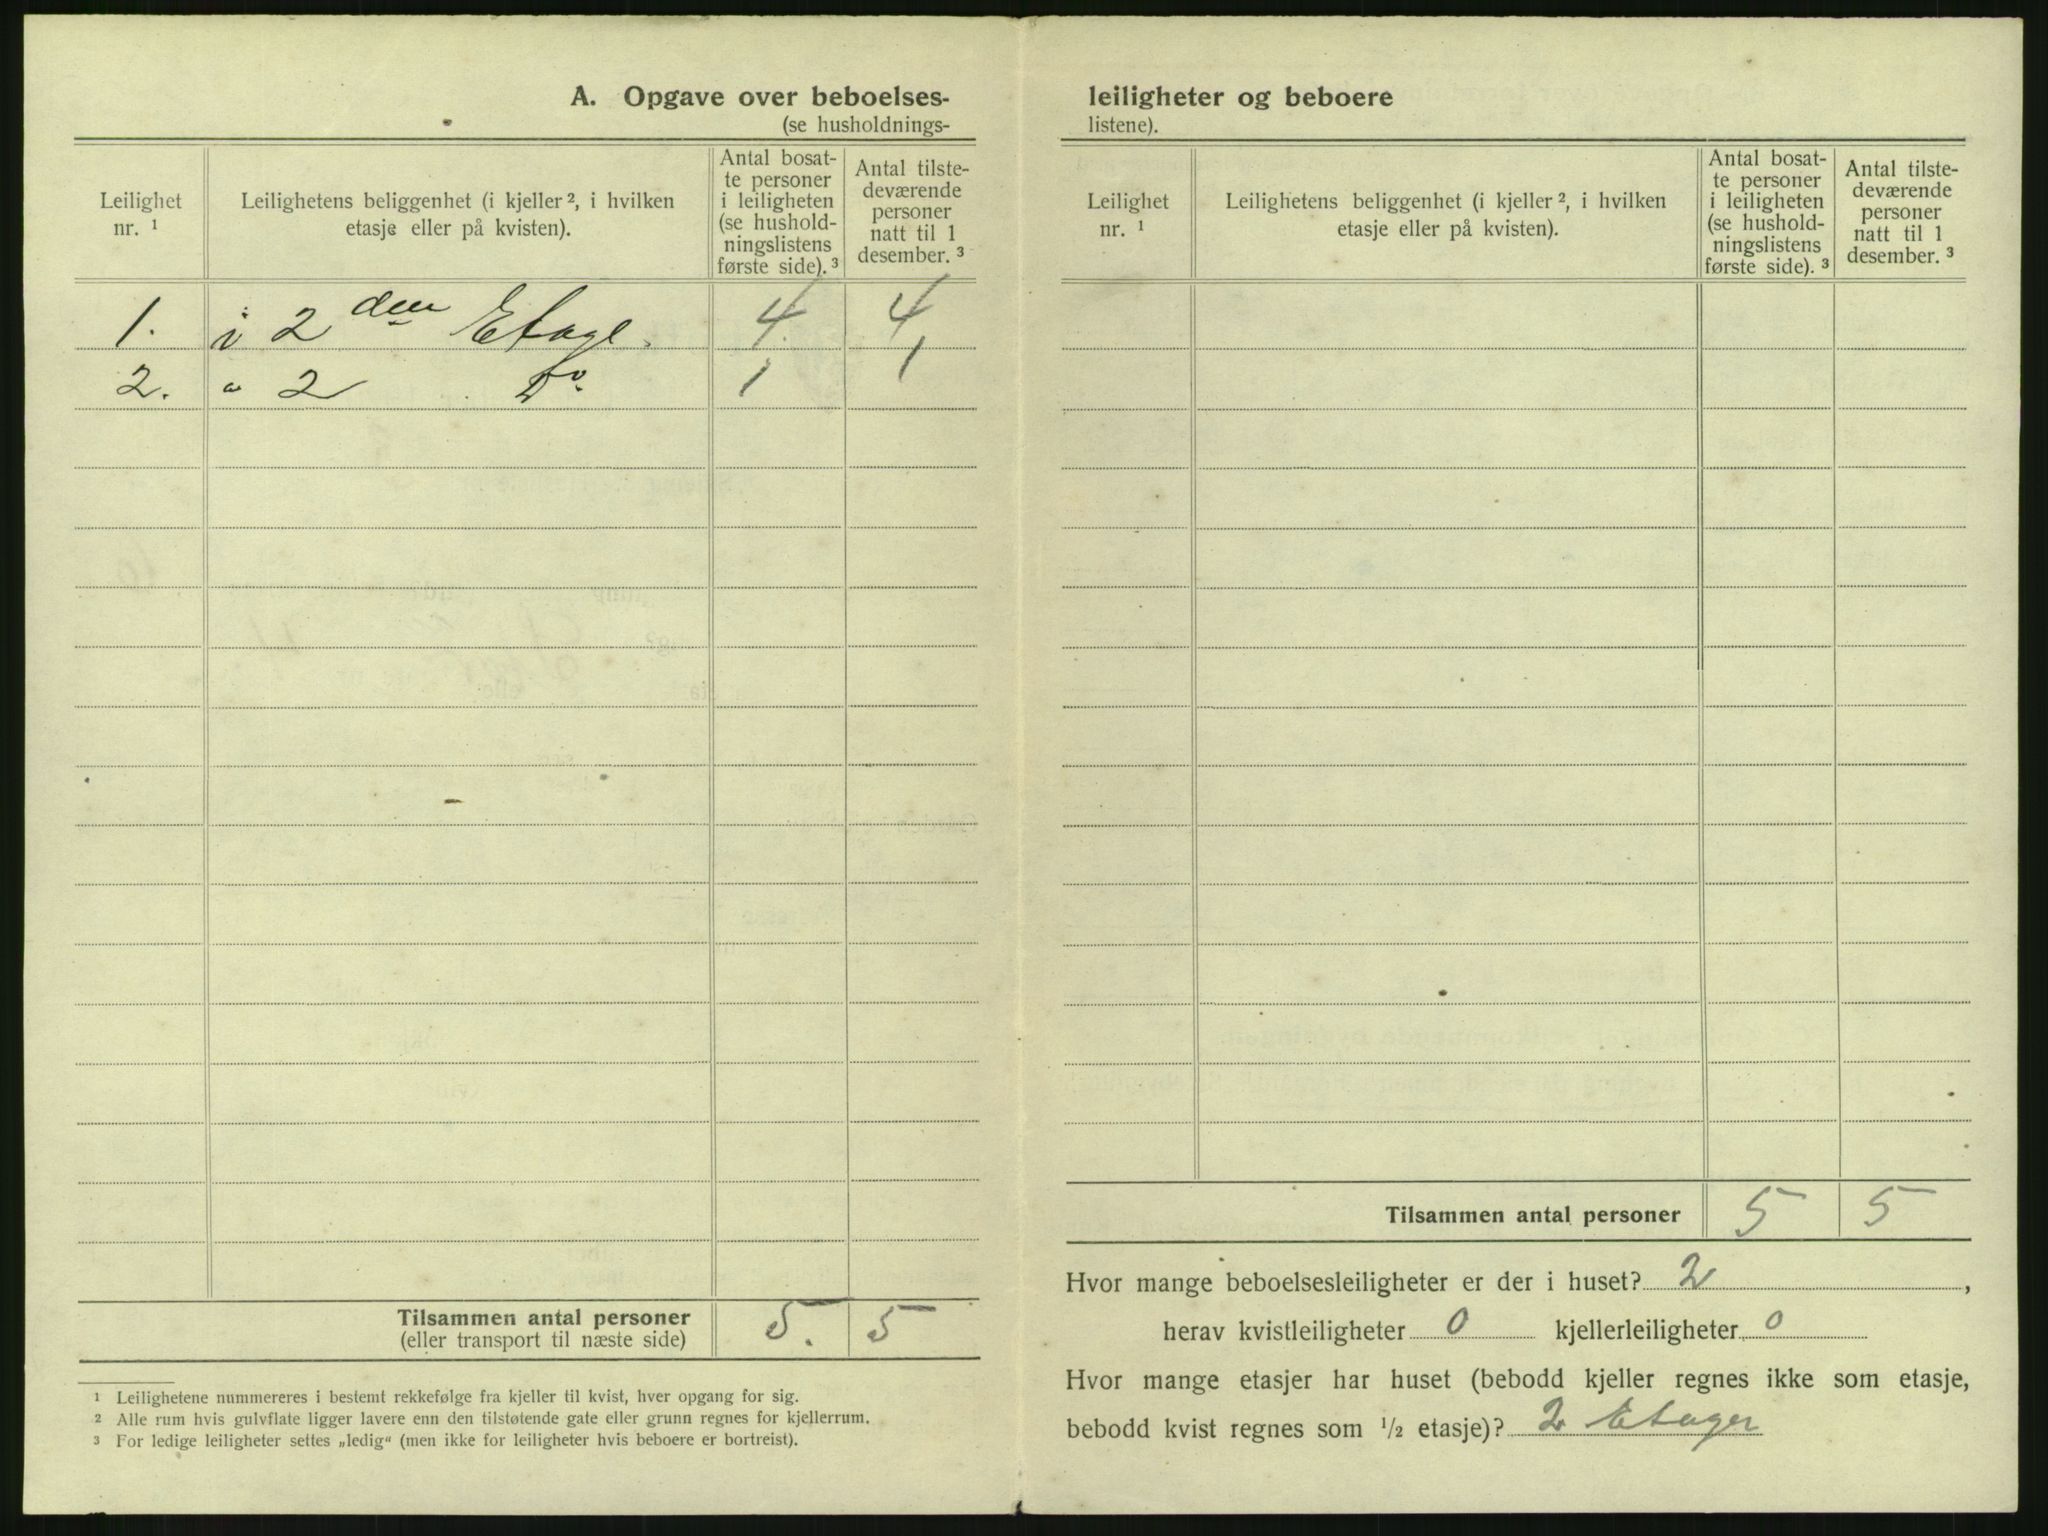 A. Opgave over beboelses-
(se husholdnings-
Leilighet nr. ¹
Leilighetens beliggenhet (i kjeller ², i hvilken etasje eller på kvisten).
Antal bosat-
te personer
i leiligheten
(se hushold-
ningslistens
første side). ³
Antal tilste-
deværende
personer
natt til 1
desember. ³
1. i 2 den Etage. 4 4
2. " 2 Do. 1 1
Tilsammen antal personer 5. 5
(eller transport til næste side)
¹ Leilighetene nummereres i bestemt rekkefølge fra kjeller til kvist, hver opgang for sig.
² Alle rum hvis gulvflate ligger lavere enn den tilstøtende gate eller grunn regnes for kjellerrum.
³ For ledige leiligheter settes „ledig“ (men ikke for leiligheter hvis beboere er bortreist).
leiligheter og beboere
listene).
Leilighet nr. ¹
Leilighetens beliggenhet (i kjeller ², i hvilken etasje eller på kvisten).
Antal bosat-
te personer
i leiligheten
(se hushold-
ningslistens
første side). ³
Antal tilste-
deværende
personer
natt til 1
desember. ³
Tilsammen antal personer 5 5
Hvor mange beboelsesleiligheter er der i huset? 2,
herav kvistleiligheter 0 kjellerleiligheter 0
Hvor mange etasjer har huset (bebodd kjeller regnes ikke som etasje,
bebodd kvist regnes som ½ etasje)? 2 Etager